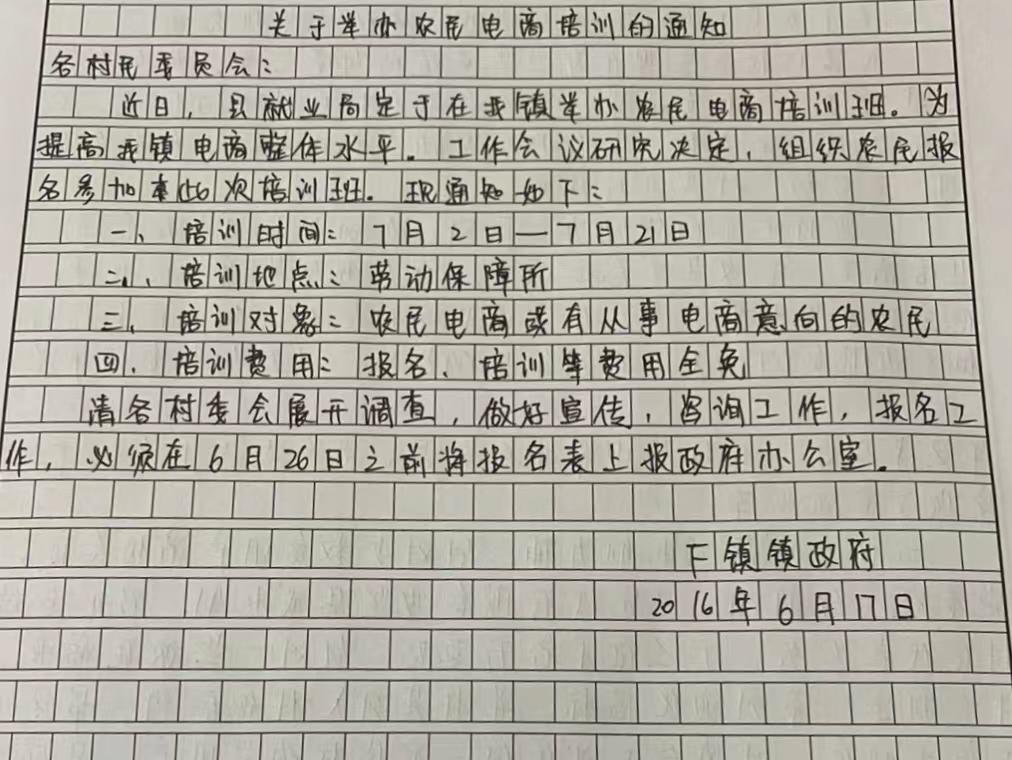 关于举办农民电商培训的通知
各村民委员会：
近日，县就业局定于在我镇举办农民电商培训班。为
提高我镇电商整体水平。工作会议研究决定，组织农民报
名参加本此次培训班。现通知如下：
一、培训时间：7月2日—7月21日
二、培训地点：劳动保障所
三、培训对象：农民电商或有从事电商意向的农民
四、培训费用：报名、培训等费用全免
请各村委会展开调查，做好宣传，咨询工作，报名工
作，必须在6月26日之前将报名表上报政府办公室。
F镇镇政府
2016年6月17日